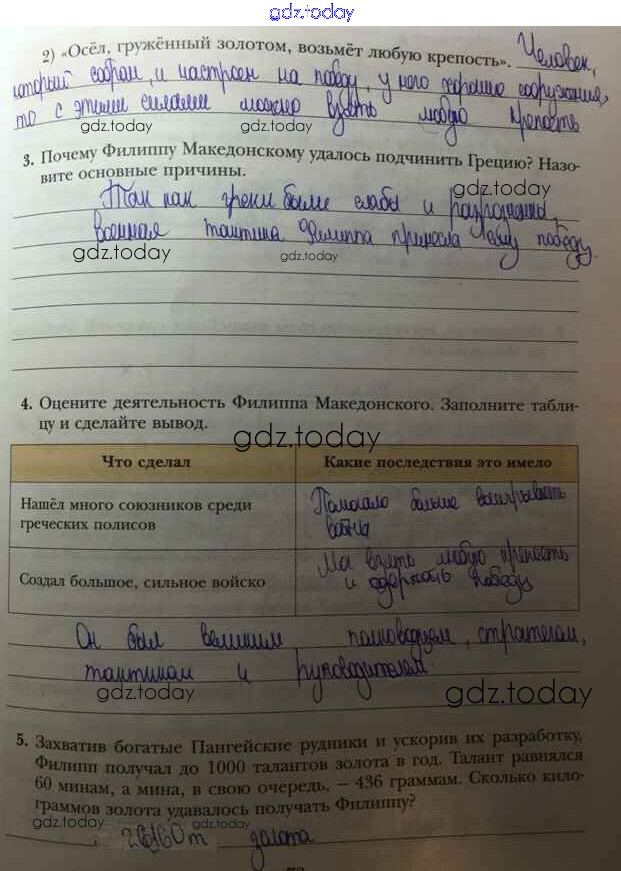 gdz.today
2) «Осёл, гружённый золотом, возьмёт любую крепость». Человек,
который собран, и настроен на победу, у него хорошие сооружения,
то с этими силами можно взять любую крепость
gdz.today gdz.today
3. Почему Филиппу Македонскому удалось подчинить Грецию? Назо-
вите основные причины.
gdz.today
Так как греки были слабы и разрознены,
военная тактика Филиппа принесла ему победу.
gdz.today gdz.today
4. Оцените деятельность Филиппа Македонского. Заполните табли-
цу и сделайте вывод.
gdz.today
Что сделал Какие последствия это имело
Нашёл много союзников среди
греческих полисов
Помогало больше выигрывать
войны
Создал большое, сильное войско
Мог взять любую крепость
и одержать победу
Он был великим полководцем, стратегом,
тактиком и руководителем.
gdz.today gdz.today
5. Захватив богатые Пангейские рудники и ускорив их разработку,
Филипп получал до 1000 талантов золота в год. Талант равнялся
60 минам, а мина, в свою очередь, – 436 граммам. Сколько кило-
граммов золота удавалось получать Филиппу?
gdz.today gdz.today
золота